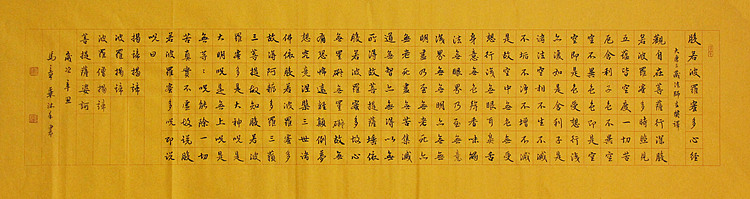 般若波羅蜜多心经
大唐三藏法師玄奘譯
觀自在菩薩行深般
若波羅蜜多時照見
五蘊皆空度一切苦
厄舍利子色不異空
空不異色色即是空
空即是色受想行識
亦復如是舍利子是
諸法空相不生不滅
不垢不淨不增不減
是故空中無色無受
想行識無眼耳鼻舌
身意無色聲香味觸
法無眼界乃至無意
識界無無明亦無無
明盡乃至無老死亦
無老死盡無苦集滅
道無智亦無得以無
所得故菩提薩埵依
般若波羅蜜多故心
無罣礙無罣礙故無
有恐怖遠離顛倒夢
想究竟涅槃三世諸
佛依般若波羅蜜多
故得阿耨多羅三藐
三菩提故知般若波
羅蜜多是大神咒是
大明咒是無上咒是
無等等咒能除一切
苦真實不虛故說般
若波羅蜜多咒即說
咒曰
揭諦揭諦
波羅揭諦
波羅僧揭諦
菩提薩婆訶
歲次辛丑